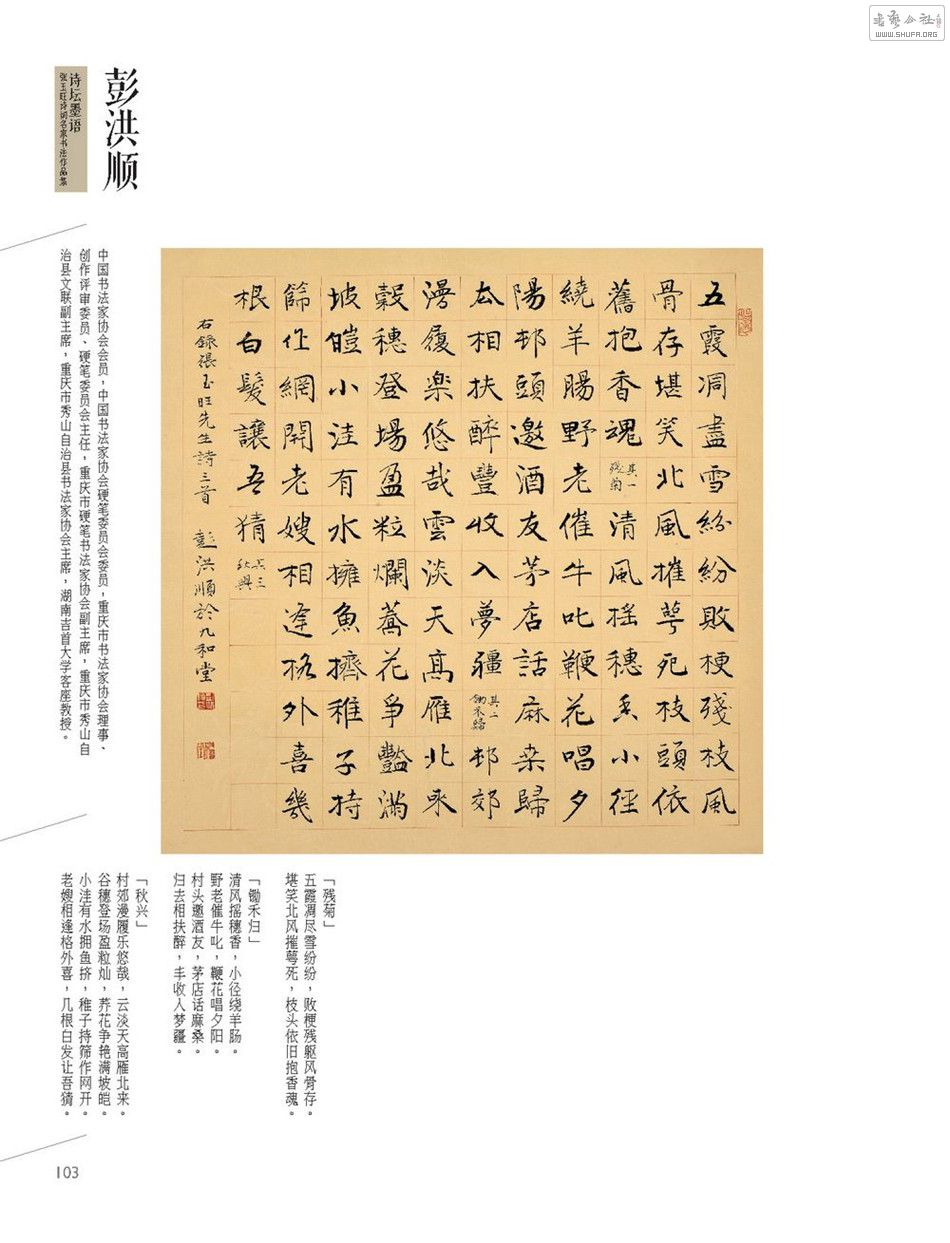 書法公社
WWW.SHUFA.ORG
彭洪顺
诗坛墨语
张玉旺诗词名家书法作品集
中国书法家协会会员，中国书法家协会硬笔委员会委员，重庆市书法家协会理事、
创作评审委员、硬笔委员会主任，重庆市硬笔书法家协会副主席，重庆市秀山自
治县文联副主席，重庆市秀山自治县书法家协会主席，湖南吉首大学客座教授。
五霞凋盡雪紛紛敗梗殘枝風
骨存堪笑北風摧萼死枝頭依
舊抱香魂 其一 殘菊 清風摇穗香小徑
繞羊腸野老催牛叱鞭花唱夕
陽邨頭邀酒友茅店話麻桑歸
去相扶醉豐收入夢疆 其二 鋤禾歸 邨郊
漫履楽悠哉雲淡天高雁北来
穀穗登場盈粒爛蕎花爭豔滿
坡皚小洼有水擁魚擠稚子持
篩作網開老嫂相逢格外喜幾
根白髮讓吾猜 其三 秋興
右録張玉旺先生詩三首 彭洪順於九和堂
「残菊」
五霞凋尽雪纷纷，败梗残躯风骨存。
堪笑北风摧萼死，枝头依旧抱香魂。
「锄禾归」
清风摇穗香，小径绕羊肠。
野老催牛叱，鞭花唱夕阳。
村头邀酒友，茅店话麻桑。
归去相扶醉，丰收入梦疆。
「秋兴」
村郊漫履乐悠哉，云淡天高雁北来。
谷穗登场盈粒灿，荞花争艳满坡皑。
小洼有水拥鱼挤，稚子持筛作网开。
老嫂相逢格外喜，几根白发让吾猜。
103